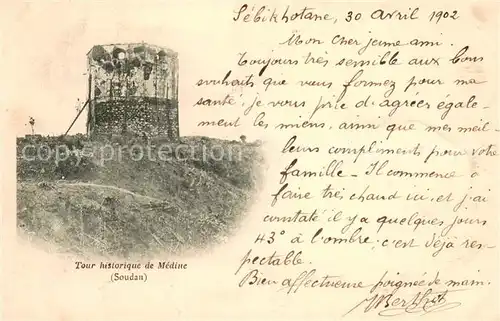 Sébikhotane, 30 Avril 1902
Mon cher jeune ami.
Toujours très sensible aux bons
souhaits que vous formez pour ma
santé, je vous prie d'agréer égale-
ment les miens, ainsi que mes meil-
leurs compliments pour votre
famille - Il commence à
faire très chaud ici, et j'ai
constaté il y a quelques jours
43° à l'ombre, c'est déjà res-
pectable.
Bien affectueuse poignée de main.
Tour historique de Médine
(Soudan)